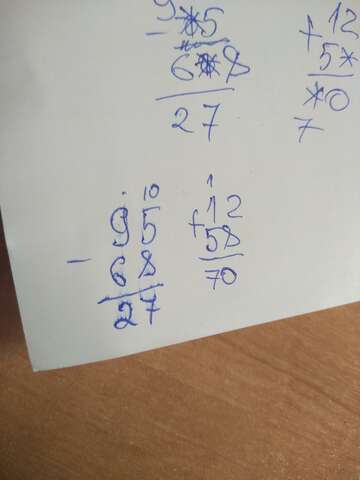 9
*5
- 6*8
27
12
+ 5*
*0
7
. 10
95
- 68
27
1
12
+ 58
70